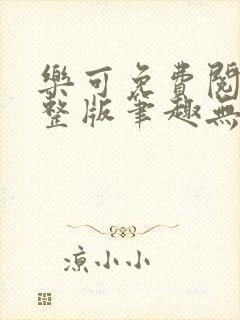 樂可免費閱
整版筆趣無
涼小小